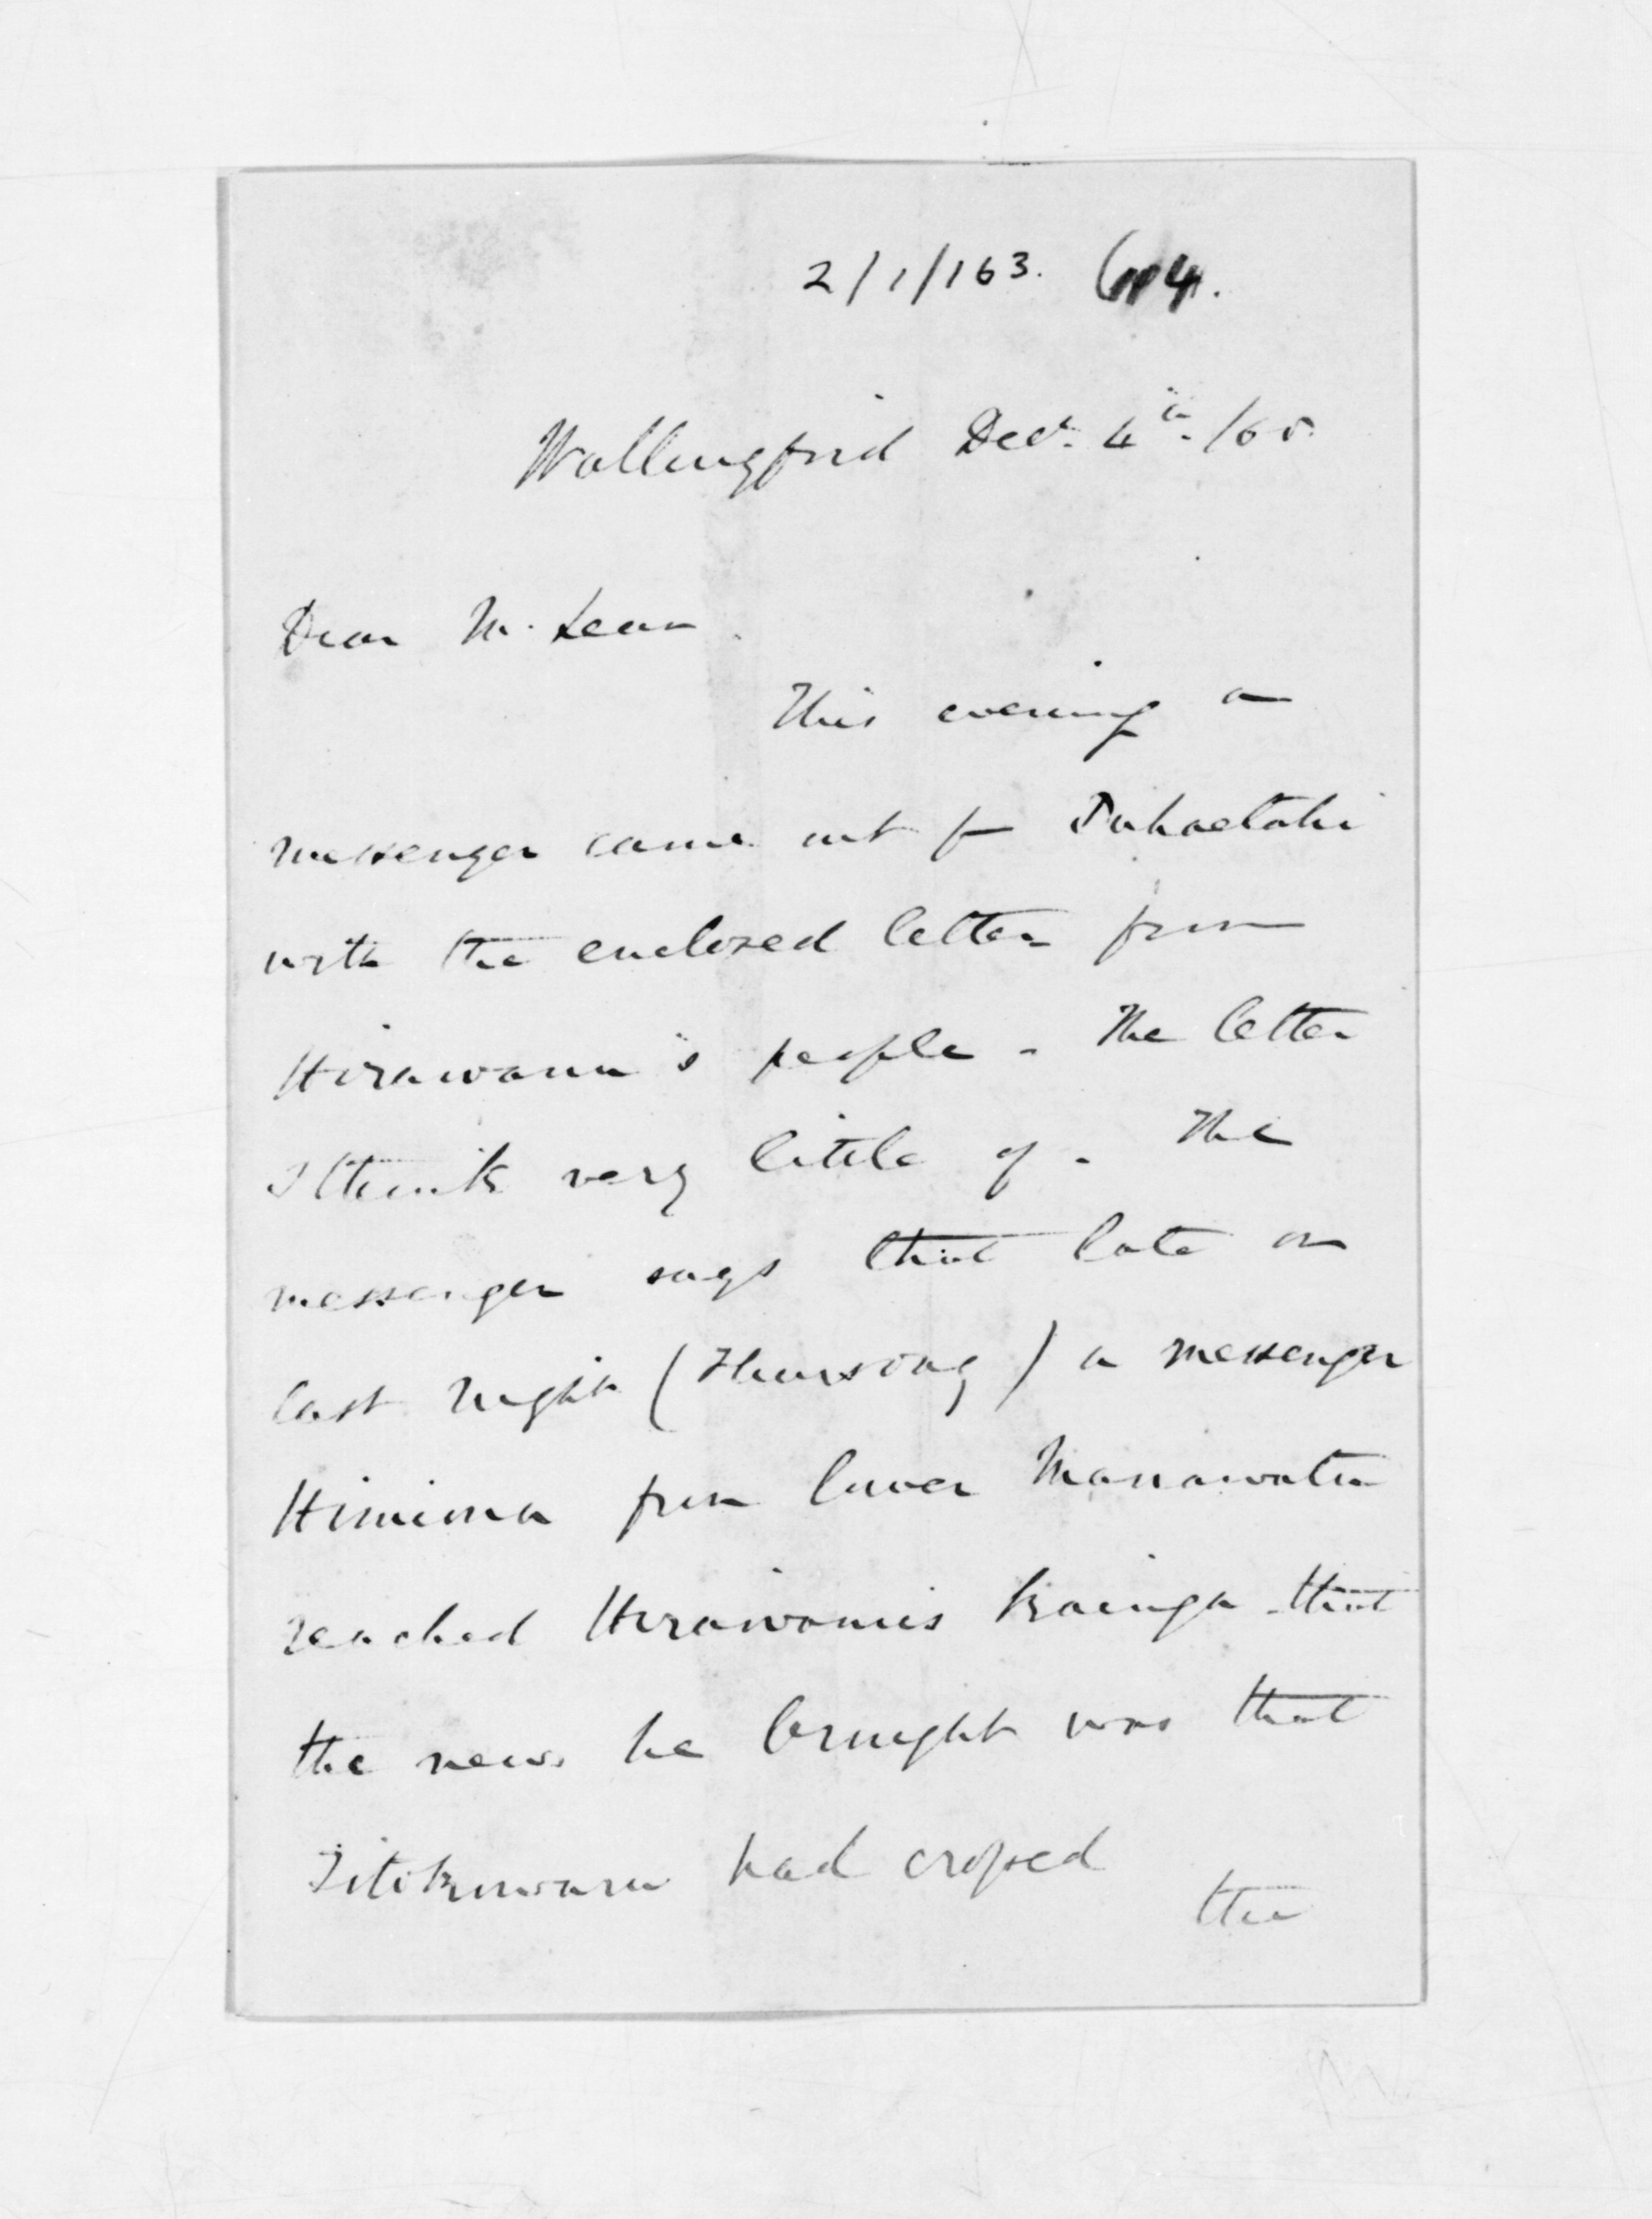 2/1/163.
Wallingford Decr. 4th. /68.
Dear McLean
This evening a
messenger came out fr
with the enclosed letter from
Hirawanu's people - The letter
I think very little of - The
messenger says that late on
last night (Thursday) a messenger
from lower Manawatu
reached Hirawanu's Kainga - that
the news he brought was that
Titokuwaru had crossed
the